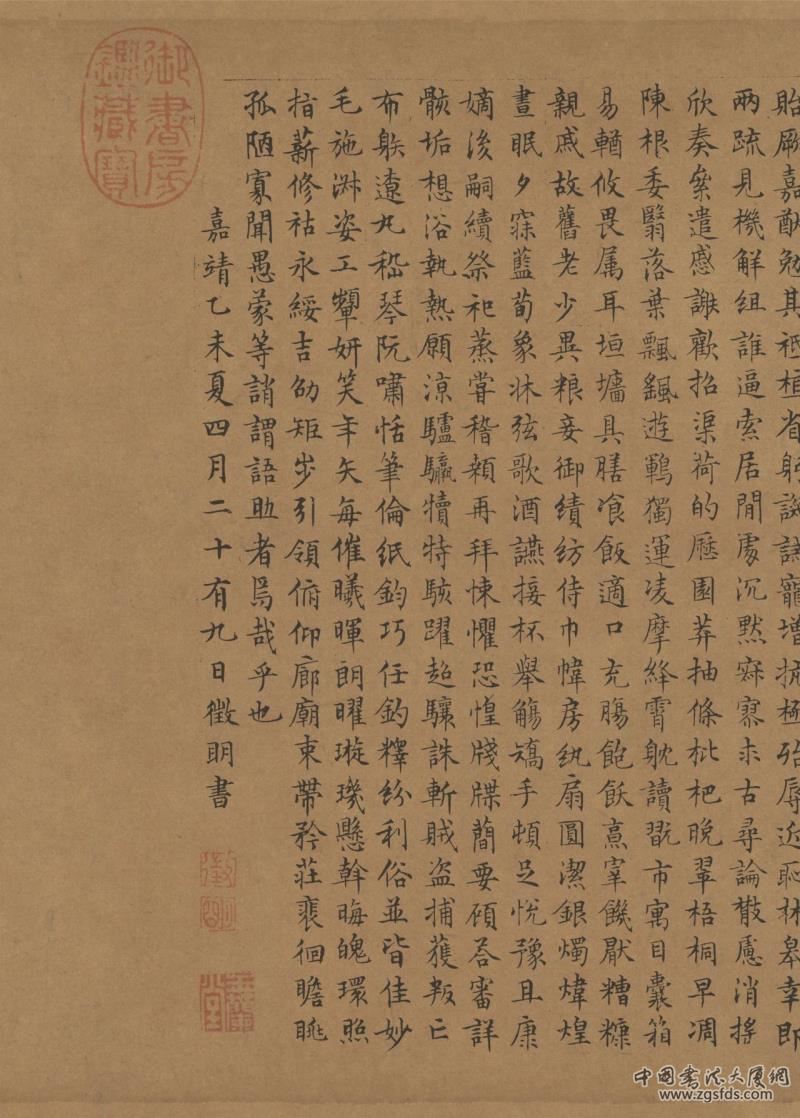 貽厥嘉猷勉其祗植省躬譏誡寵增抗極殆辱近恥林皋幸即
兩疏見機解組誰逼索居閒處沉默寂寥求古尋論散慮消搖
欣奏累遣慼謝歡招渠荷的歷園莽抽條枇杷晚翠梧桐早凋
陳根委翳落葉飄颻遊鵾獨運凌摩絳霄耽讀翫市寓目囊箱
易輶攸畏属耳垣墻具膳飡飯適口充腸飽飫烹宰饑厭糟糠
親戚故舊老少異粮妾御績紡侍巾幃房紈扇圓潔銀燭煒煌
晝眠夕寐藍筍象牀弦歌酒讌接杯舉觴矯手頓足悅豫且康
嫡後嗣續祭祀蒸嘗稽顙再拜悚懼恐惶牋牒簡要顧答審詳
骸垢想浴執熱願涼驢騾犢特駭躍超驤誅斬賊盗捕獲叛亡
布射遼丸嵇琴阮嘯恬筆倫紙鈞巧任釣釋紛利俗並皆佳妙
毛施淑姿工顰妍笑年矢每催曦暉朗曜璇璣懸斡晦魄環照
指薪修祜永綏吉劭矩步引領俯仰廊廟束帶矜莊裵徊瞻眺
孤陋寡聞愚蒙等誚謂語助者焉哉乎也
嘉靖乙未夏四月二十有九日徵明書
徵明
玉蘭堂
御書房鑑藏寶
中國書法大廈網
www.zgsfds.com